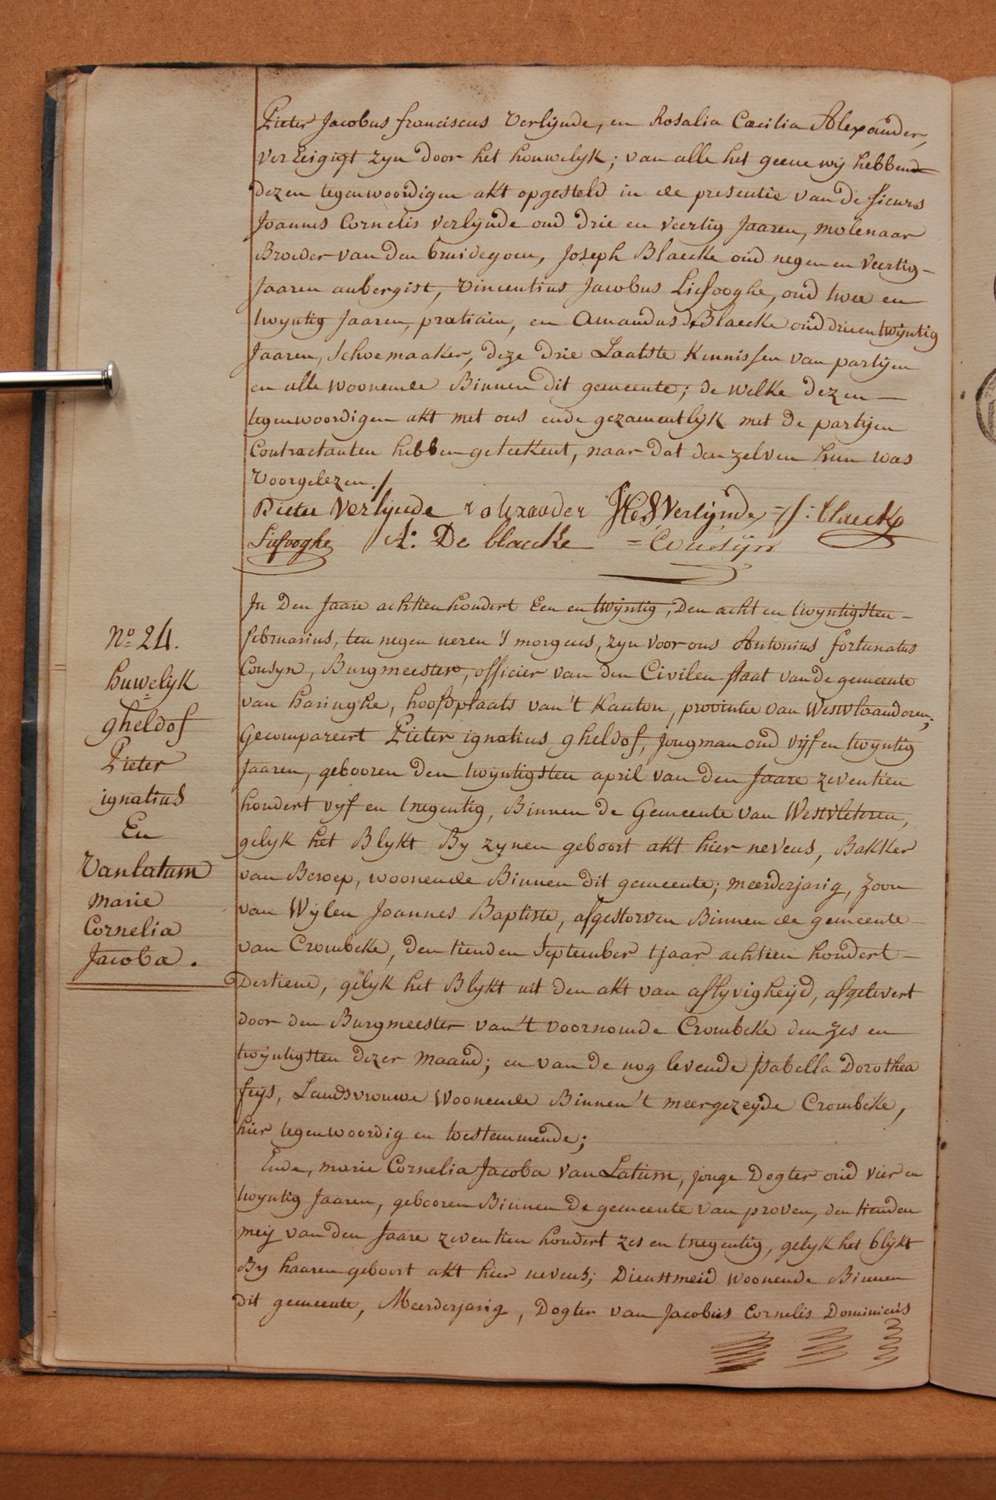 Pieter Jacobus franciscus Verlynde, en Rosalia Cæcilia Alexander,
Vereigigt zyn door het houwelyk; van alle het geene wij hebben
dezen tegenwoordigen akt opgesteld in de presentie van de sieurs
Joannes Cornelis Verlynde oud drie en veertig Jaaren, molenaar
Broeder van den bruidegoen, Joseph Blaecke oud negen en veertig
Jaaren aubergist, Vincentius Jacobus Liefooghe, oud twee en
twyntig Jaaren, praticien, en Amandus De Blaecke oud drie en twyntig
Jaaren, Schoemaaker, deze drie Laatste Kennissen van partijen
en alle woonende Binnen dit gemeente; de welke dezen
tegenwoordigen akt met ons ende gezamentlyk met de partijen
Contractanten hebben geteekent, naar dat den zelven hun was
voorgelezen./
Pieter Verlynde r alexander Verlynde J: blaecke
Liefooghe A: De blaecke = Cousijn
N.o 24.
huwelyk
gheldof
Pieter
ignatius
En
Vanlatum
marie
Cornelia
Jacoba.
In Den Jaare achttien hondert Een en twyntig, Den acht en twyntigsten
februarius, ten negen ueren 's morgens, zyn voor ons Antonius fortunatus
Cousyn, Burgmeester, officier van den Civilen staat van de gemeente
van haringhe, hoofdplaats van 't Kanton, provintie van Westvlaanderen,
Gecompareert Pieter ignatius gheldof, Jongman oud vyf en twyntig
Jaaren, gebooren den twyntigsten april van den Jaare zeventien
hondert vyf en tnegentig, Binnen de Gemeente van Westvleteren,
gelyk het Blykt By zynen geboort akt hier nevens, Bakker
van Beroep, woonende Binnen dit gemeente; meerderjarig, zoon
van Wylen Joannes Baptiste, afgestorven Binnen de gemeente
van Crombeke, den tienden September tjaar achtien hondert
Dertiene, gelyk het Blykt uit den akt van aflyvigheijd, afgelevert
door den Burgmeester van 't voornomde Crombeke den zes en
twyntigsten dezer maand; en van de nog levende Isabella Dorothea
feys, Landsvrouwe Woonende Binnen 't meergezeyde Crombeke,
hier tegenwoordig en toestemmende;
Ende, marie Cornelia Jacoba van Latum, jonge Dogter oud vier en
twyntig Jaaren, gebooren Binnen De gemeente van proven, den tienden
meij van den Jaare zeventien hondert zes en tnegentig, gelyk het blykt
By haaren geboort akt hier nevens; Dienstmeid woonende Binnen
dit gemeente, Meerderjarig, Dogter van Jacobus Cornelis Dominicus